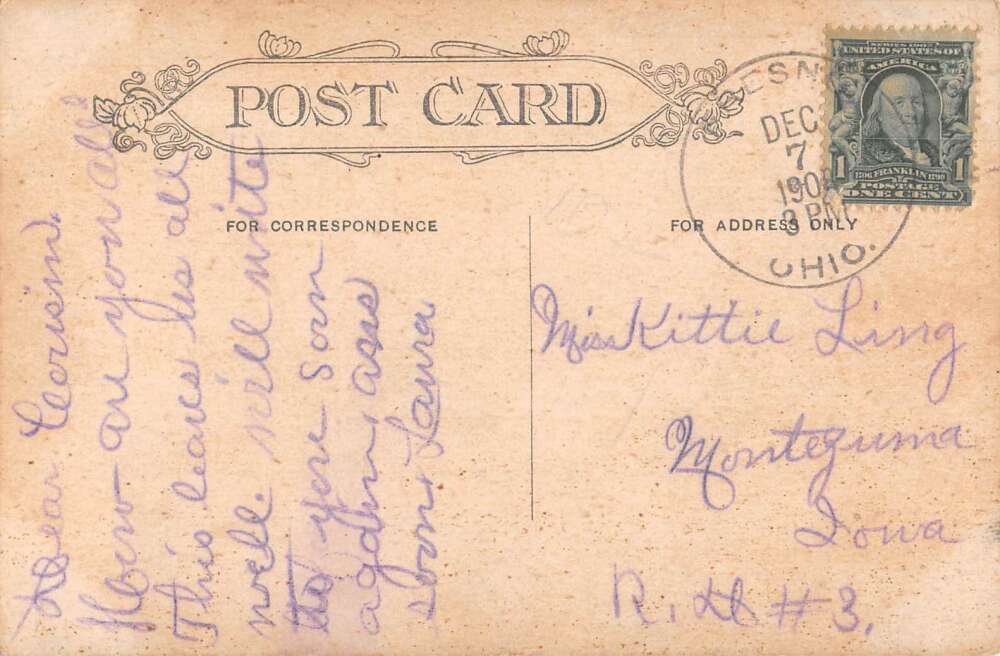 POST CARD
FOR CORRESPONDENCE
FOR ADDRESS ONLY
SERIES 1902
UNITED STATES OF
AMERICA
1 1
1706 FRANKLIN 1790
POSTAGE
ONE CENT
DEC
7
190
3 PM
OHIO.
Dear Cousin.
How are you all?
This leaves us all
well. will write
to you soon
again, ans
soon, Laura
Miss Kittie Ling
Montezuma
Iowa
R. D. #3.